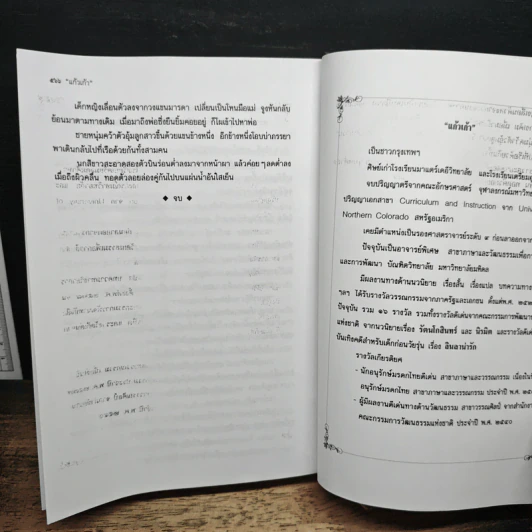 ๕๖๖ "แก้วเก้า"
เด็กหญิงเลื่อนตัวลงจากวงแขนมารดา เปลี่ยนเป็นโหนมือแม่ จูงหันกลับ
ย้อนมาตามทางเดิม เมื่อมาถึงพ่อซึ่งยืนยิ้มคอยอยู่ ก็โผเข้าไปหาพ่อ
ชายหนุ่มคว้าตัวอุ้มลูกสาวขึ้นด้วยแขนข้างหนึ่ง อีกข้างหนึ่งโอบบ่าภรรยา
พาเดินกลับไปที่เรือด้วยกันทั้งสามคน
นกสีขาวสะอาดสองตัวบินร่อนต่ำลงมาจากหน้าผา แล้วค่อยๆลดต่ำลง
เมื่อถึงผิวคลื่น ทอดตัวลอยล่องคู่กันไปบนแผ่นน้ำอันใสเย็น
◆ จบ ◆
"แก้วเก้า"
เป็นชาวกรุงเทพฯ
ศิษย์เก่าโรงเรียนมาแตร์เดอีวิทยาลัย และโรงเรียนเตรียมอุ
จบปริญญาตรีจากคณะอักษรศาสตร์ จุฬาลงกรณ์มหาวิทยา
ปริญญาเอกสาขา Curriculum and Instruction จาก Univ
Northern Colorado สหรัฐอเมริกา
เคยมีตำแหน่งเป็นรองศาสตราจารย์ระดับ ๙ ก่อนลาออกจาก
ปัจจุบันเป็นอาจารย์พิเศษ สาขาภาษาและวัฒนธรรมเพื่อการ
และการพัฒนา บัณฑิตวิทยาลัย มหาวิทยาลัยมหิดล
มีผลงานทางด้านนวนิยาย เรื่องสั้น เรื่องแปล บทความทาง
ฯลฯ ได้รับรางวัลวรรณกรรมจากภาครัฐและเอกชน ตั้งแต่พ.ศ.
ปัจจุบัน รวม ๑๖ รางวัล รวมทั้งรางวัลดีเด่นจากคณะกรรมการพัฒนา
แห่งชาติ จากนวนิยายเรื่อง รัตนโกสินทร์ และ นิรมิต และรางวัลดี
บันเทิงคดีสำหรับเด็กก่อนวัยรุ่น เรื่อง สินลาน่ารัก
รางวัลเกียรติยศ
- นักอนุรักษ์มรดกไทยดีเด่น สาขาภาษาและวรรณกรรม เนื่องใน
อนุรักษ์มรดกไทย สาขาภาษาและวรรณกรรม ประจำปี พ.ศ.
- ผู้มีผลงานดีเด่นทางด้านวัฒนธรรม สาขาวรรณศิลป์ จากสำนัก
คณะกรรมการวัฒนธรรมแห่งชาติ ประจำปี พ.ศ. ๒๕๔๐